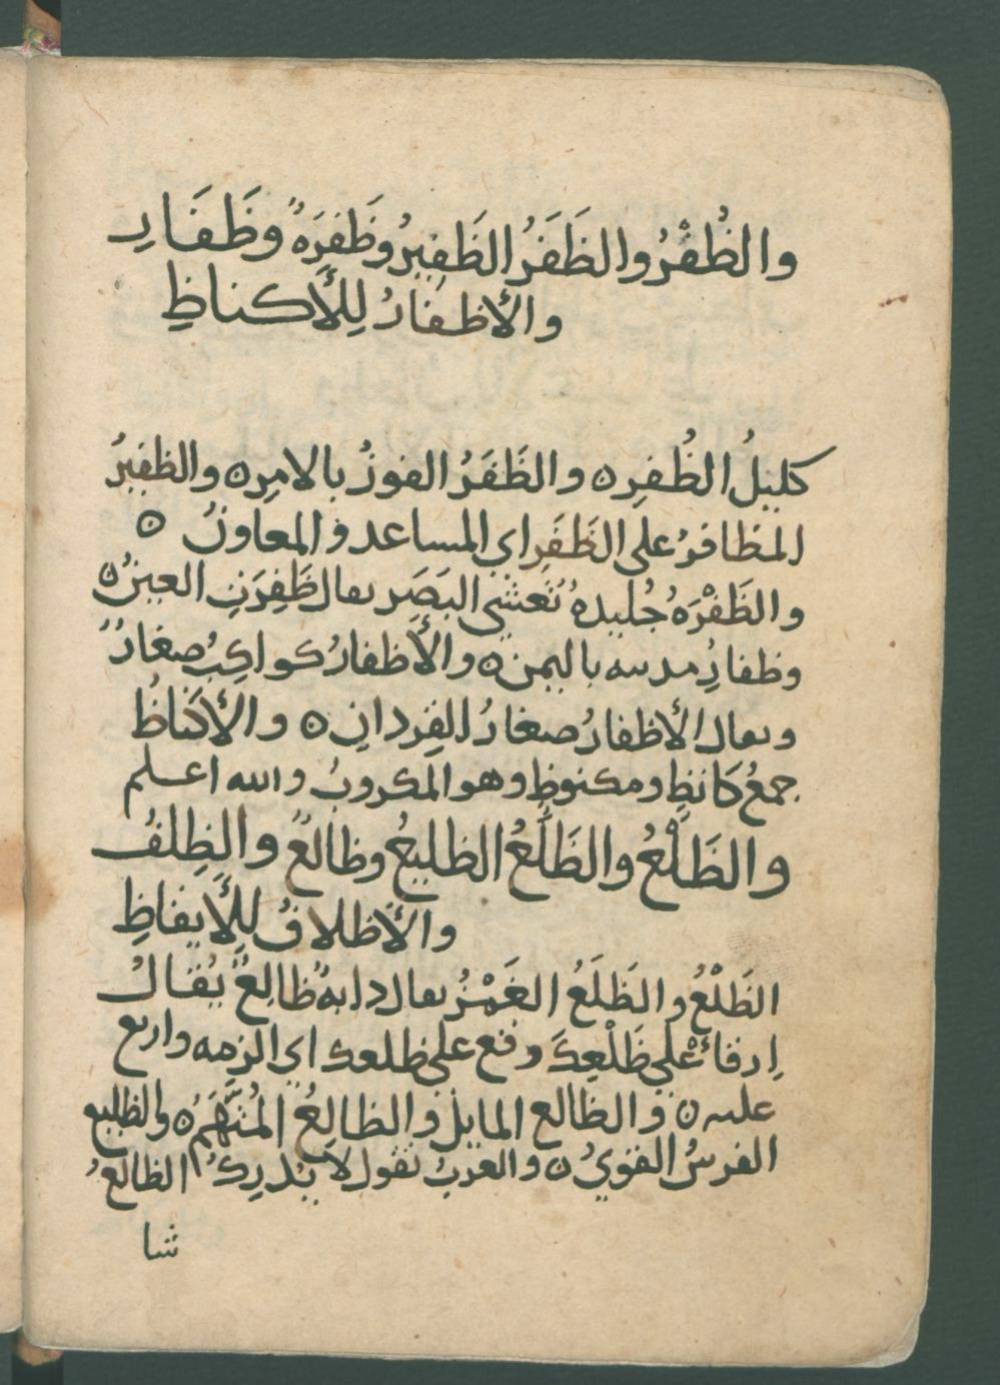 والظُفْرُ والظَفَرُ الظَفيرُ وظَفرَةٌ وظَفَارِ
والأظفارُ لِلأكناظِ
كليلُ الظُفرِ ه والظَفَرُ الفوزُ بالامرِ ه والظفيرُ
المظافرُ على الظَفَرِ اي المساعد والمعاونُ ه
والظَفْرَهُ جُليدهُ تُعشي البَصَر يقال ظَفِرَتِ العينُ ه
وظفارِ مدينه باليمن ه والأظفارُ كواكِبُ صغارٌ
ويقال الأظفارُ صغارُ القِردانِ ه والأكناظُ
جمعُ كَانظٍ ومكنوظٍ وهو المكروبُ والله اعلم
والظَلْعُ والظَلَعُ الظليعُ وظالعٌ والظِلفُ
والأظلافُ للإيفاظِ
الظَلْعُ والظَلَعُ الغَمْزُ يقال دابهٌ ظالِعٌ يُقالُ
اِرقأ عْلي ظَلْعِكَ وقع على ظلعك اي الزمه واربع
عليه ه والظالع المايل والظالعُ المُتَّهَمُ ه والظليع
الفرسُ القويُ ه والعربُ تقول لا يُدرِكُ الظالعُ
شا